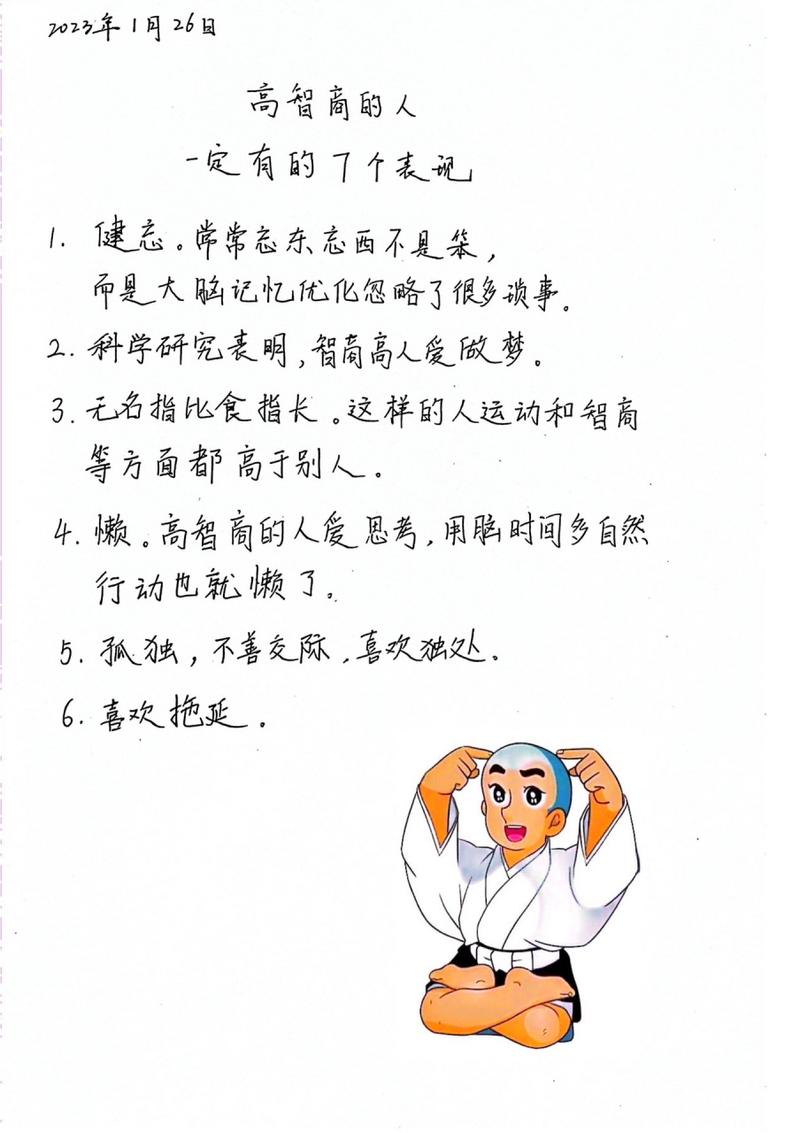 2023年1月26日
高智商的人
一定有的7个表现
1. 健忘。常常忘东忘西不是笨，
而是大脑记忆优化忽略了很多琐事。
2. 科学研究表明，智商高人爱做梦。
3. 无名指比食指长。这样的人运动和智商
等方面都高于别人。
4. 懒。高智商的人爱思考，用脑时间多自然
行动也就懒了。
5. 孤独，不善交际，喜欢独处。
6. 喜欢拖延。